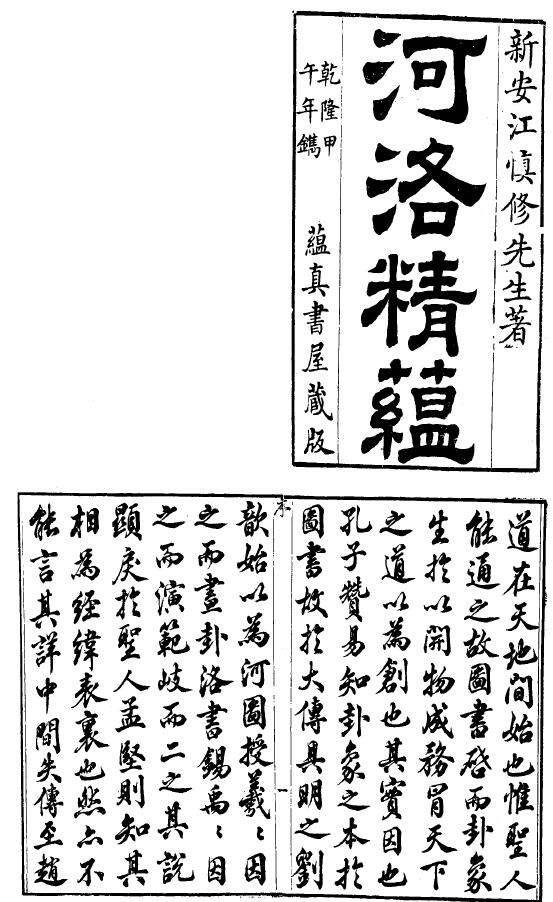 新安江慎修先生著
河洛精蘊
乾隆甲
午年鐫
蘊真書屋藏版
道在天地間始也惟聖人
能通之故圖書啓而卦象
生於以開物成務冐天下
之道以為創也其實因也
孔子贊易知卦象之本於
圖書故於大傳具明之劉
歆始以為河圖授羲羲因
之而畫卦洛書錫禹禹因
之而演範岐而二之其說
顯戾於聖人孟堅則知其
相為經緯表裏也然亦不
能言其詳中間失傳至趙